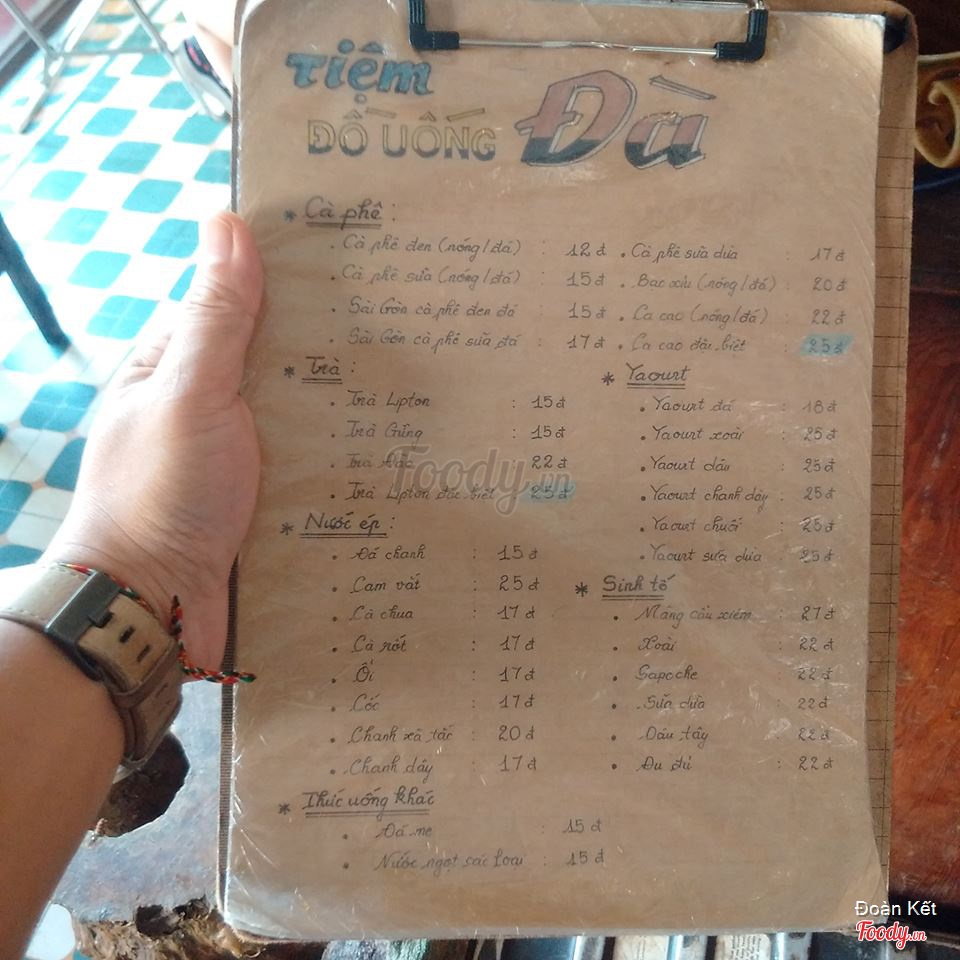 Tiệm
ĐỒ UỐNG Đà
* Cà phê :
. Cà phê đen (nóng/đá) : 12 đ
. Cà phê sữa (nóng/đá) : 15 đ
. Sài Gòn cà phê đen đá : 15 đ
. Sài Gòn cà phê sữa đá : 17 đ
. Cà phê sữa dừa : 17 đ
. Bạc xỉu (nóng/đá) : 20 đ
. Ca cao (nóng/đá) : 22 đ
. Ca cao đặc biệt : 25 đ
* Trà :
. Trà Lipton : 15 đ
. Trà Gừng : 15 đ
. Trà : 22 đ
. Trà Lipton đặc biệt : 25 đ
* Yaourt
. Yaourt đá : 18 đ
. Yaourt xoài : 25 đ
. Yaourt dâu : 25 đ
. Yaourt chanh dây : 25 đ
. Yaourt chuối : 25 đ
. Yaourt sữa dừa : 25 đ
* Nước ép :
. Đá chanh : 15 đ
. Cam vắt : 25 đ
. Cà chua : 17 đ
. Cà rốt : 17 đ
. Ổi : 17 đ
. Cóc : 17 đ
. Chanh xã tắc : 20 đ
. Chanh dây : 17 đ
* Sinh tố
. Mãng cầu xiêm : 27 đ
. Xoài : 22 đ
. Sapoche : 22 đ
. Sữa dừa : 22 đ
. Dâu tây : 22 đ
. Đu đủ : 22 đ
* Thức uống khác
. Đá me : 15 đ
. Nước ngọt các loại : 15 đ
Foody.vn
Đoàn Kết
Foody.vn